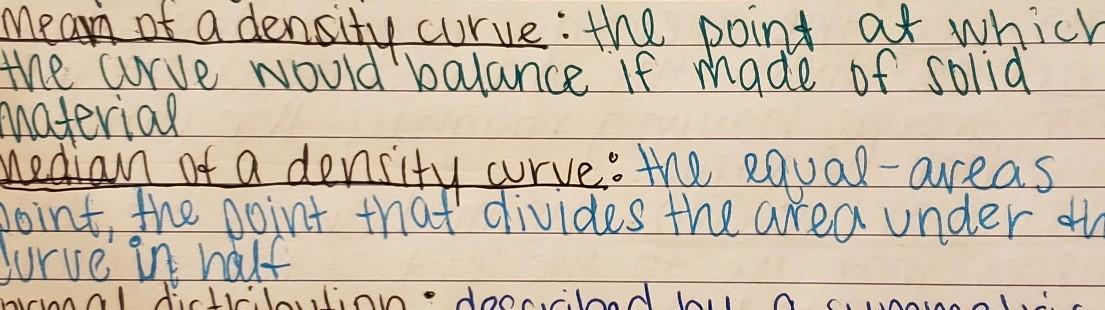 Mean of a density curve: the point at which
the curve would balance if made of solid
material
Median of a density curve: the equal-areas
point, the point that divides the area under th
curve in half
normal distribution: described by a symmetric